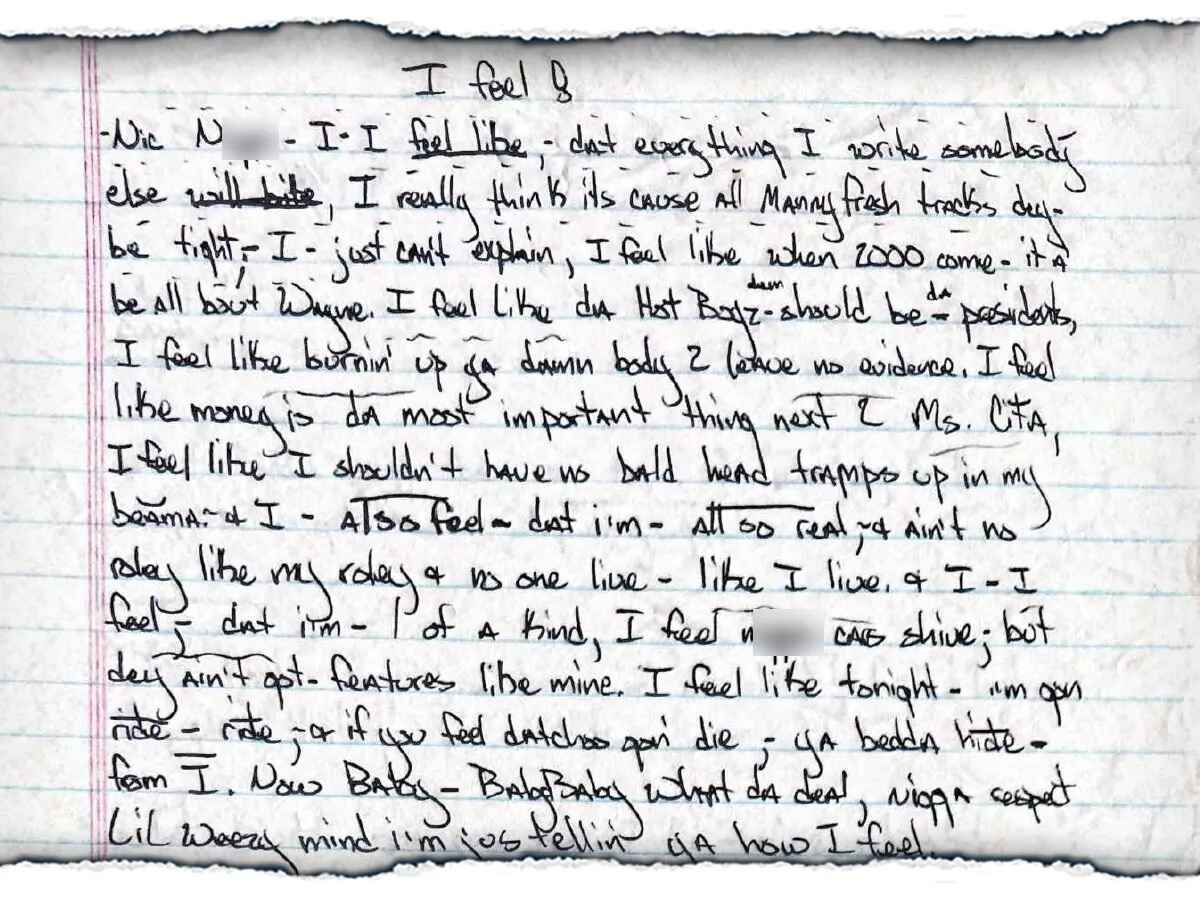 I feel
-Nic N - I-I feel like, - dat everything I write somebody
else will bite, I really think its cause all Manny fresh tracks dey-
be tight,- I - just can't explain, I feel like when 2000 come - it'a
be all bout Wayne. I feel like da Hot Boyz dam - should be - da presidents,
I feel like burnin' up ya damn body 2 leave no evidence. I feel
like money is da most important thing next 2 Ms. Cita,
I feel like I shouldn't have no bald head tramps up in my
beama.-& I - also feel - dat i'm - all so real,-& ain't no
roley like my roley & no one live - like I live. & I - I
feel,- dat i'm - 1 of a kind, I feel n cars shine; but
dey ain't got - features like mine. I feel like tonight - i'm gon
ride - ride,-& if you feel datchoo gon' die,- ya bedda hide -
from I. Now Baby - BabyBaby what da deal, nigga respect
Lil Weezy mind i'm jus tellin' ya how I feel.